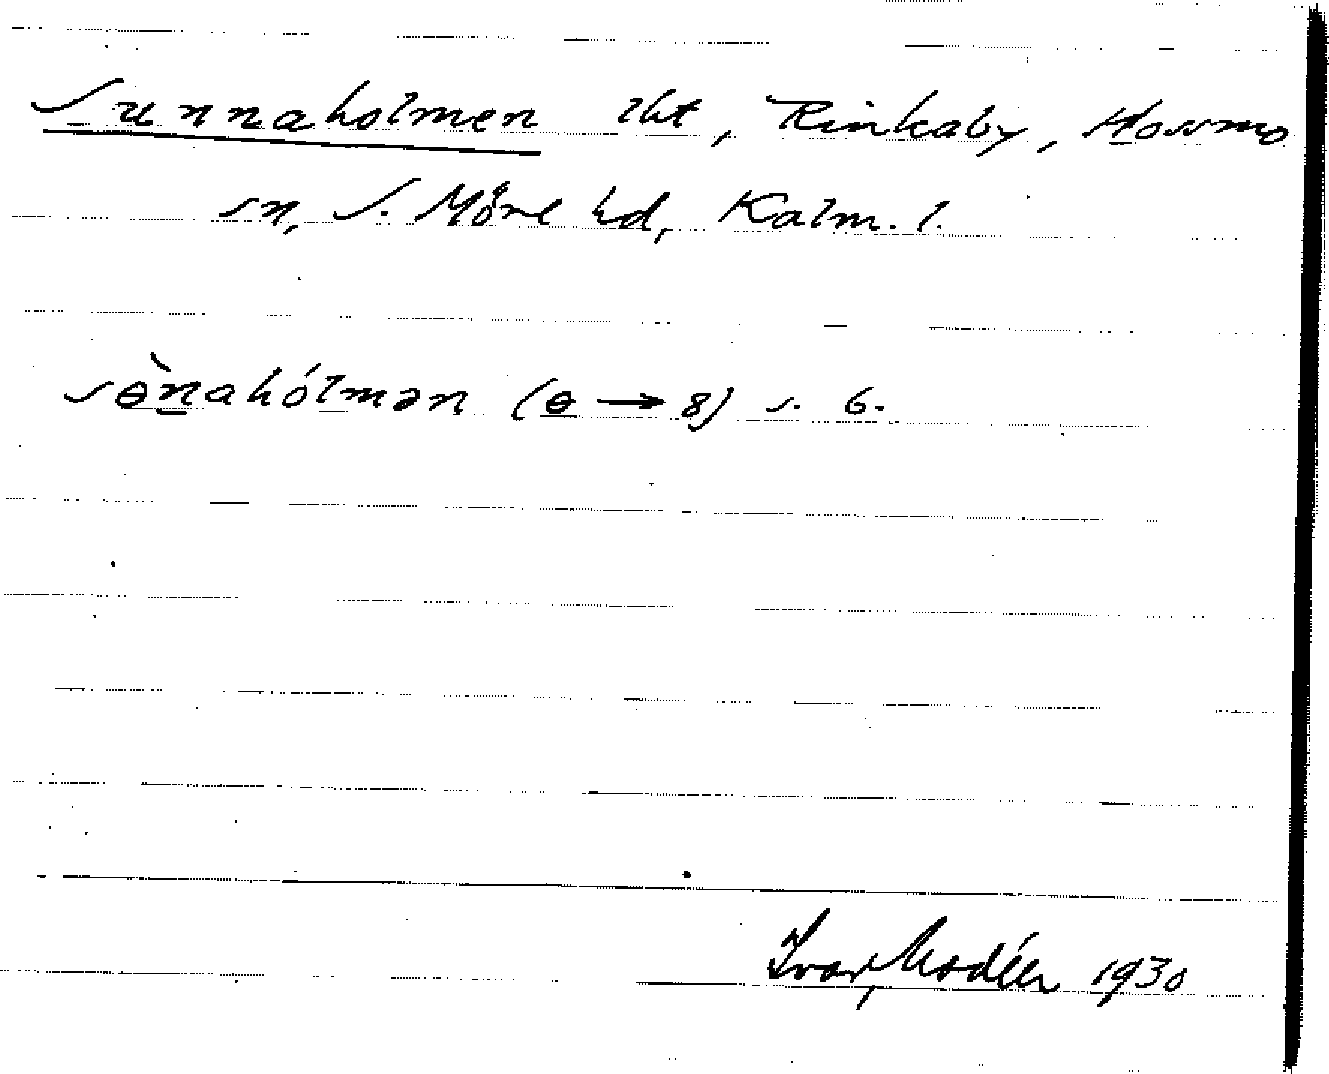 Sunnaholmen lht, Rinkaby, Hossmo
sn, S. Möre hd, Kalm. l.
sɵ̀nahólmən (ɵ → 8) s. 6.
Ivar Modéer 1930